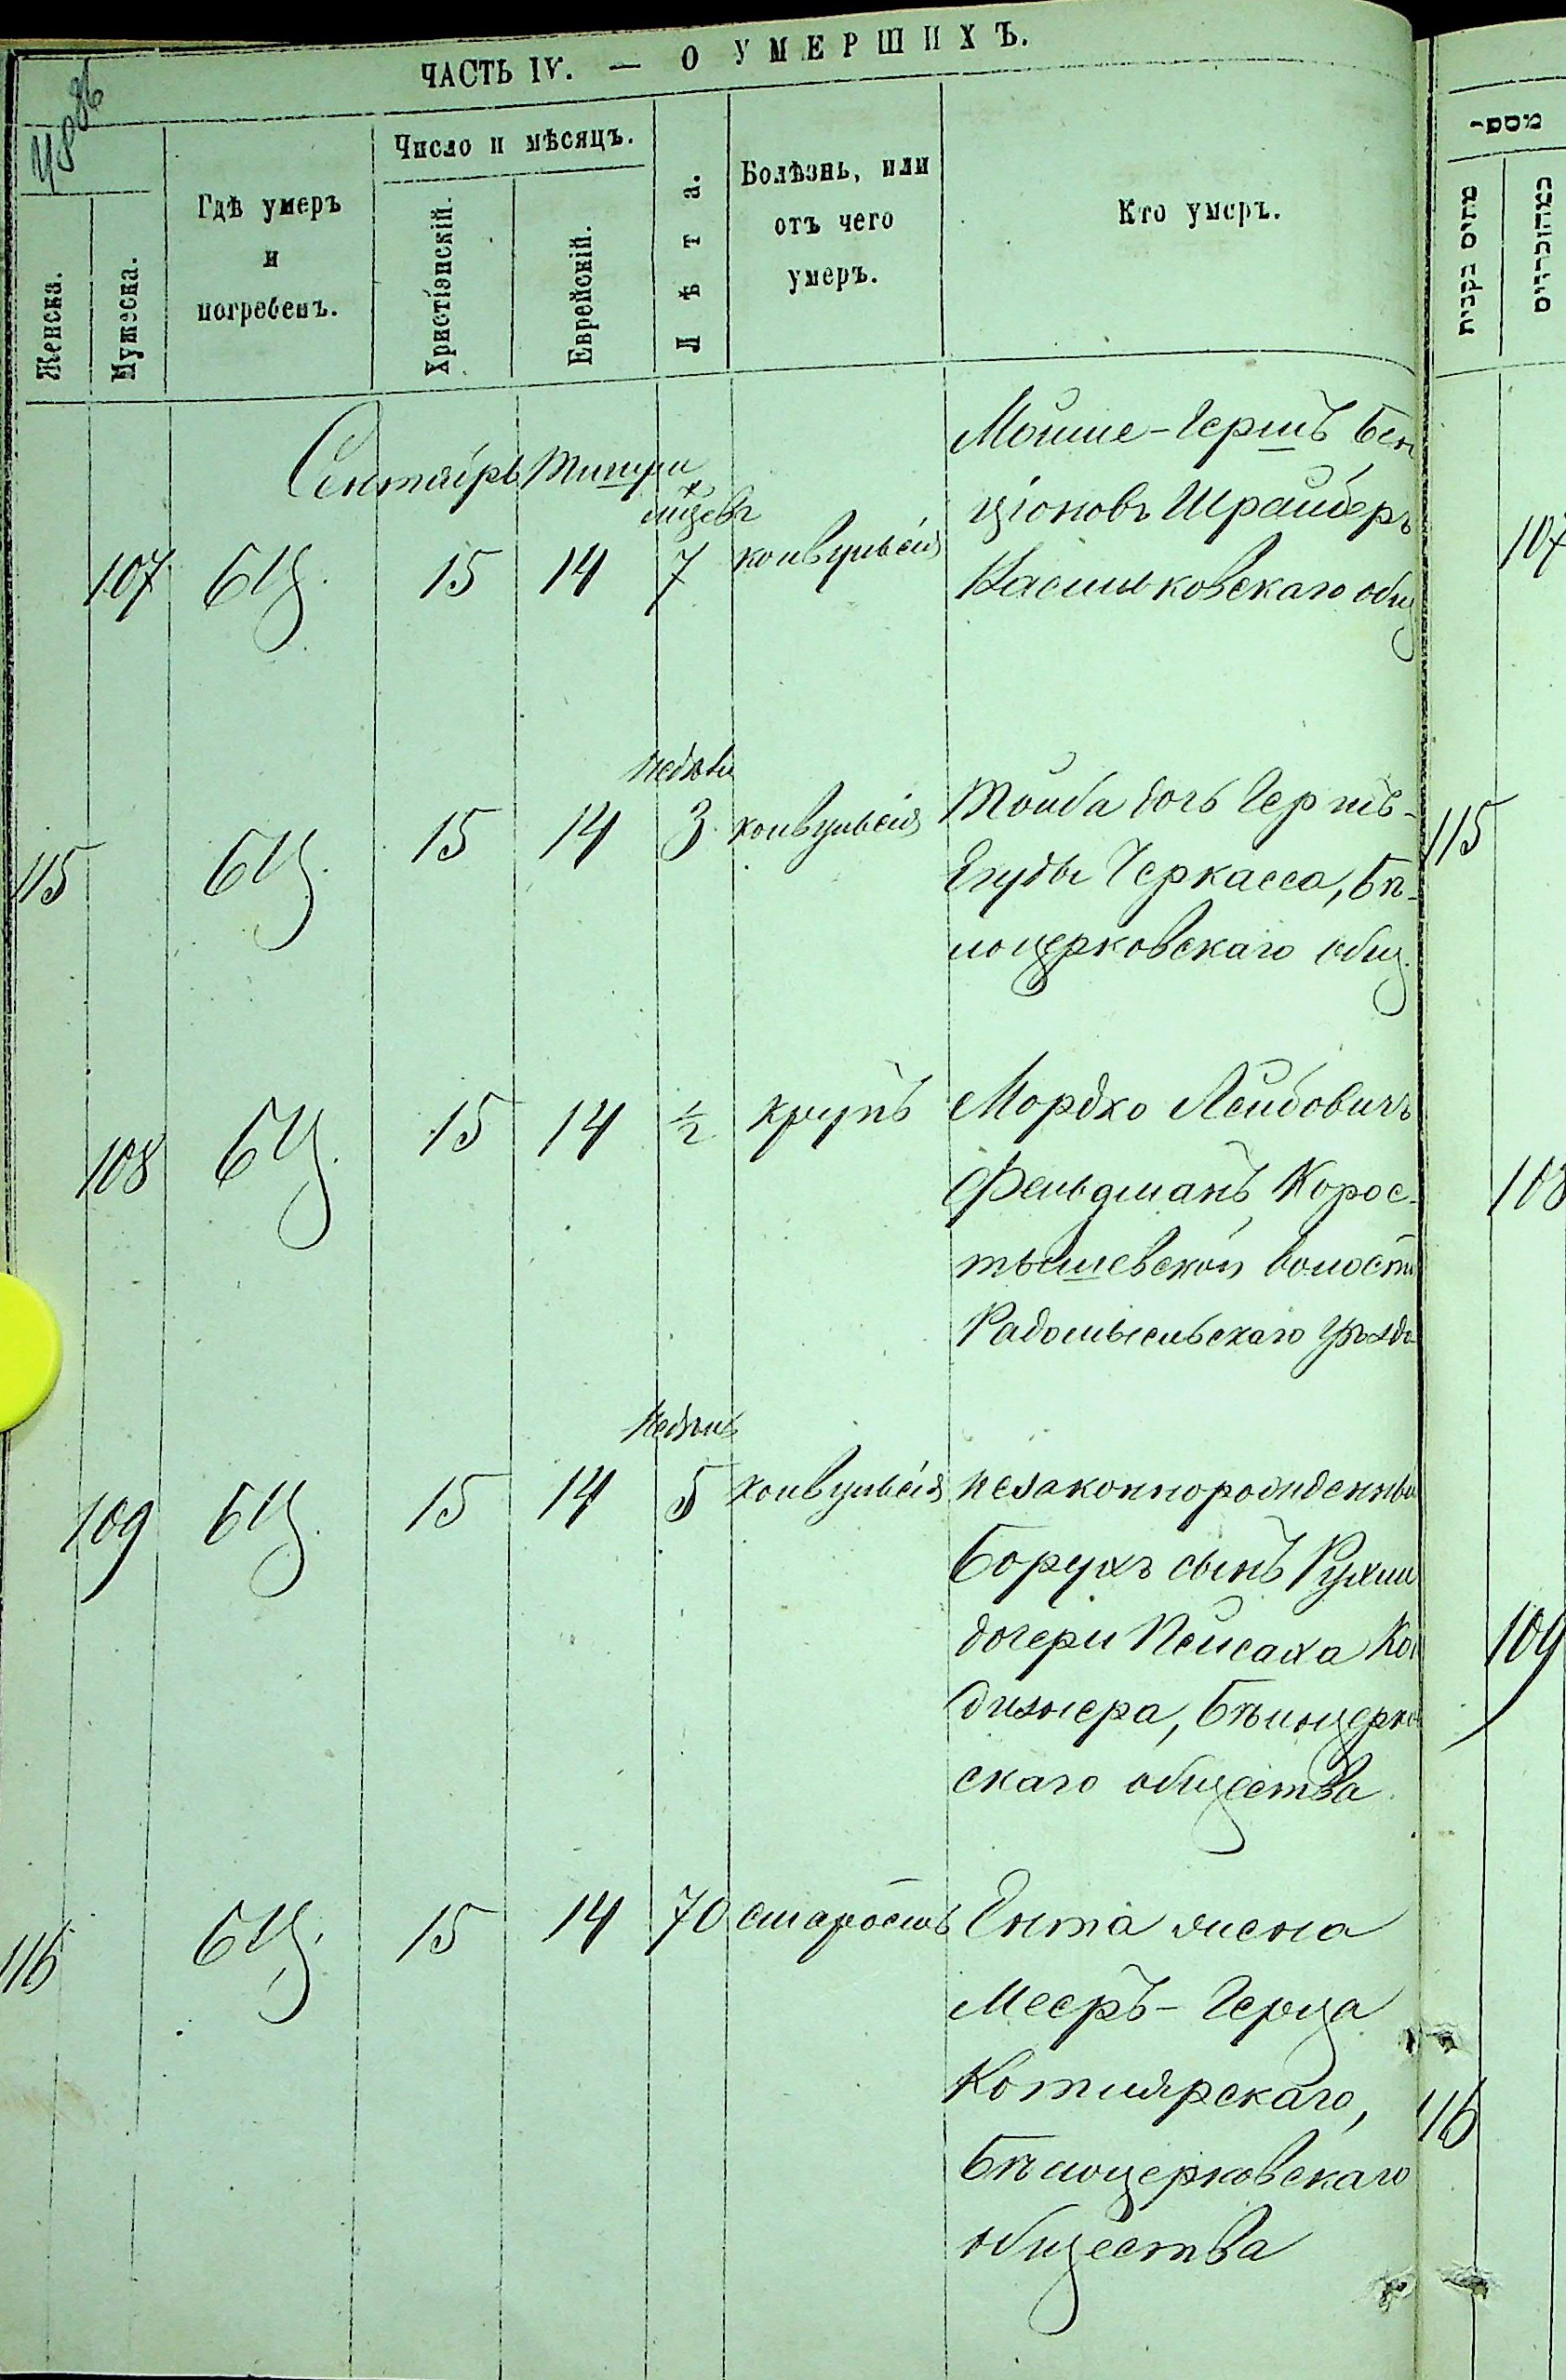 ЧАСТЬ IV. — О УМЕРШИХЪ.
Женска.
Мужеска.
Гдѣ умеръ
и
погребенъ.
Число и мѣсяцъ.
Христіэнскій.
Еврейскій.
Лѣта.
Болѣзнь, или
отъ чего
умеръ.
Кто умеръ.
Сентябрь Тишри
107 БЦ. 15 14 7 конвульсія
Мойше-Гершъ Бен
ціоновъ Шрайберъ
Васильковскаго общ
115 БЦ. 15 14 недѣли 3 конвульсія
Тойба дочь Гершъ-
Егуды Черкасса, Бѣ-
лоцерковскаго общ.
108 БЦ. 15 14 1/2 крупъ
Мордко Лейбовичъ
Фельдманъ, Корос-
тышевской волости
Радомысльскаго уѣзда
109 БЦ. 15 14 Недѣль 5 конвульсія
незаконнорожденный
Борухъ сынъ Рухли
дочери Пейсаха
дизнера, Бѣлоцерков
скаго общества.
116 БЦ. 15 14 70 старость
Ента жена
Мееръ-Герца
Котлярскаго,
Бѣлоцерковскаго
общества
מספר
מתים נקבות
107
115
108
109
116